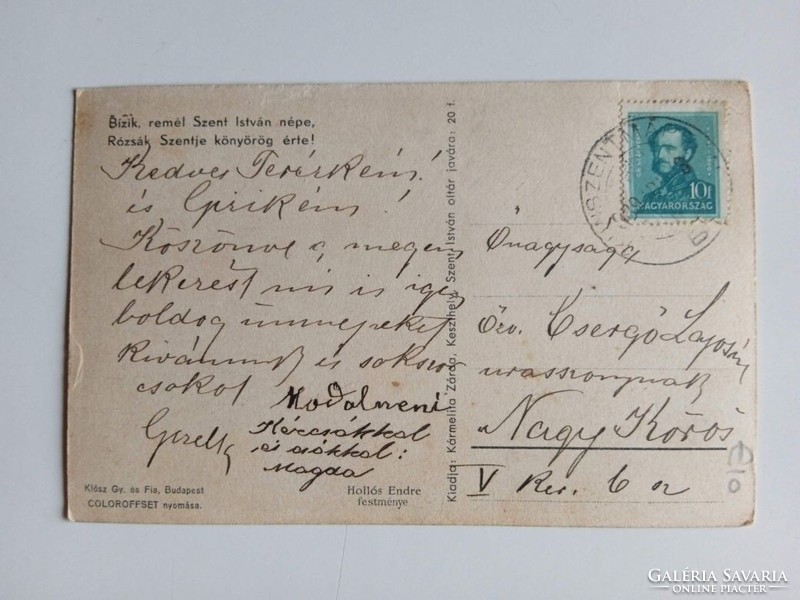 Bízik, remél Szent István népe,
Rózsák Szentje könyörög érte!
Kedves Terérkém!
és Cprikém!
Köszönve a megem
lekerést mi is igen
boldog ünnepeket
kivánunk és sokszor
csokol
Modolneni
Gizella
Kézcsókkal
és csókkal:
Magda
Klősz Gy. és Fia, Budapest
COLOROFFSET nyomása.
Hollós Endre
festménye
Kiadja: Kármelita Zárda, Keszthely, Szent István oltár javára: 20 f.
10f
MAGYARORSZÁG
Őnagysága
Özv. Csergő Lajosné
urasszonynak
Nagy Kőrös
V Ker. 6 sz
E10
GALÉRIA SAVARIA
ONLINE PIACTÉR